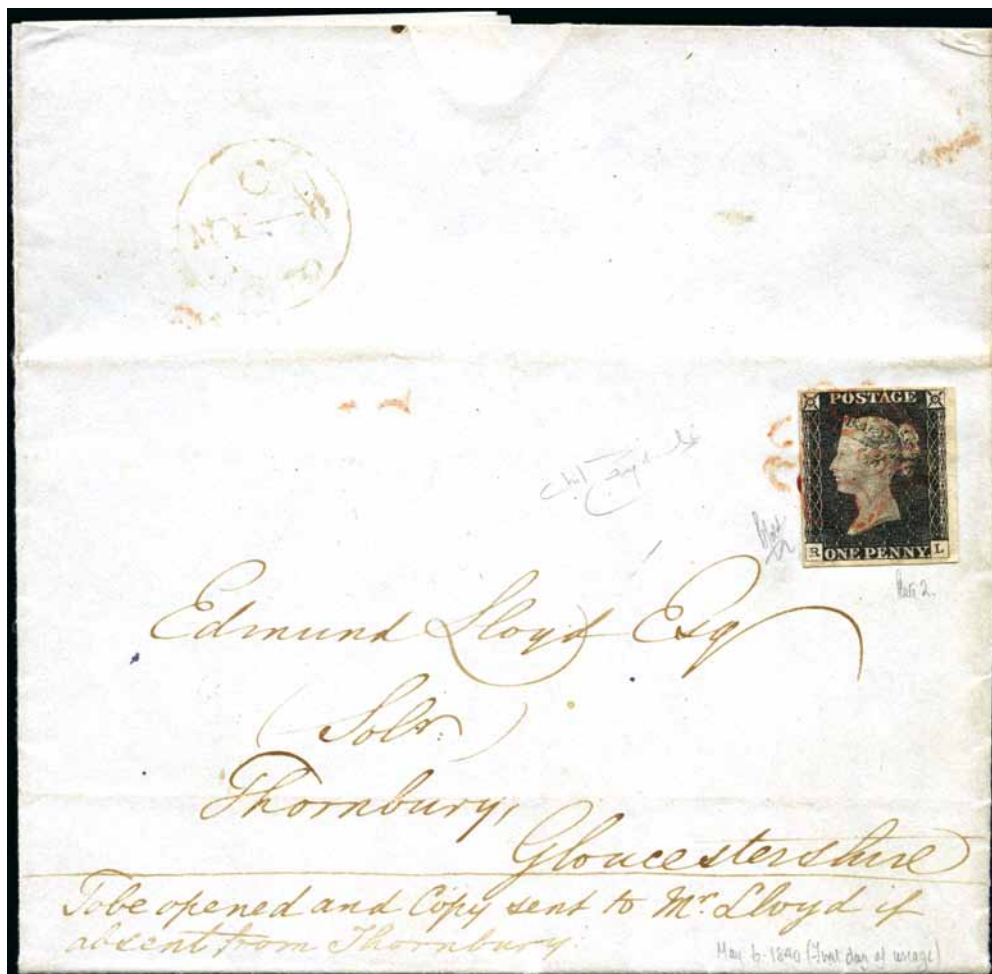 POSTAGE
R ONE PENNY L
Plate 2.
Edmund Lloyd Esq
(Solr.)
Thornbury,
Gloucestershire
To be opened and Copy sent to Mr. Lloyd if
absent from Thornbury.
May 6. 1840 (First day of usage)